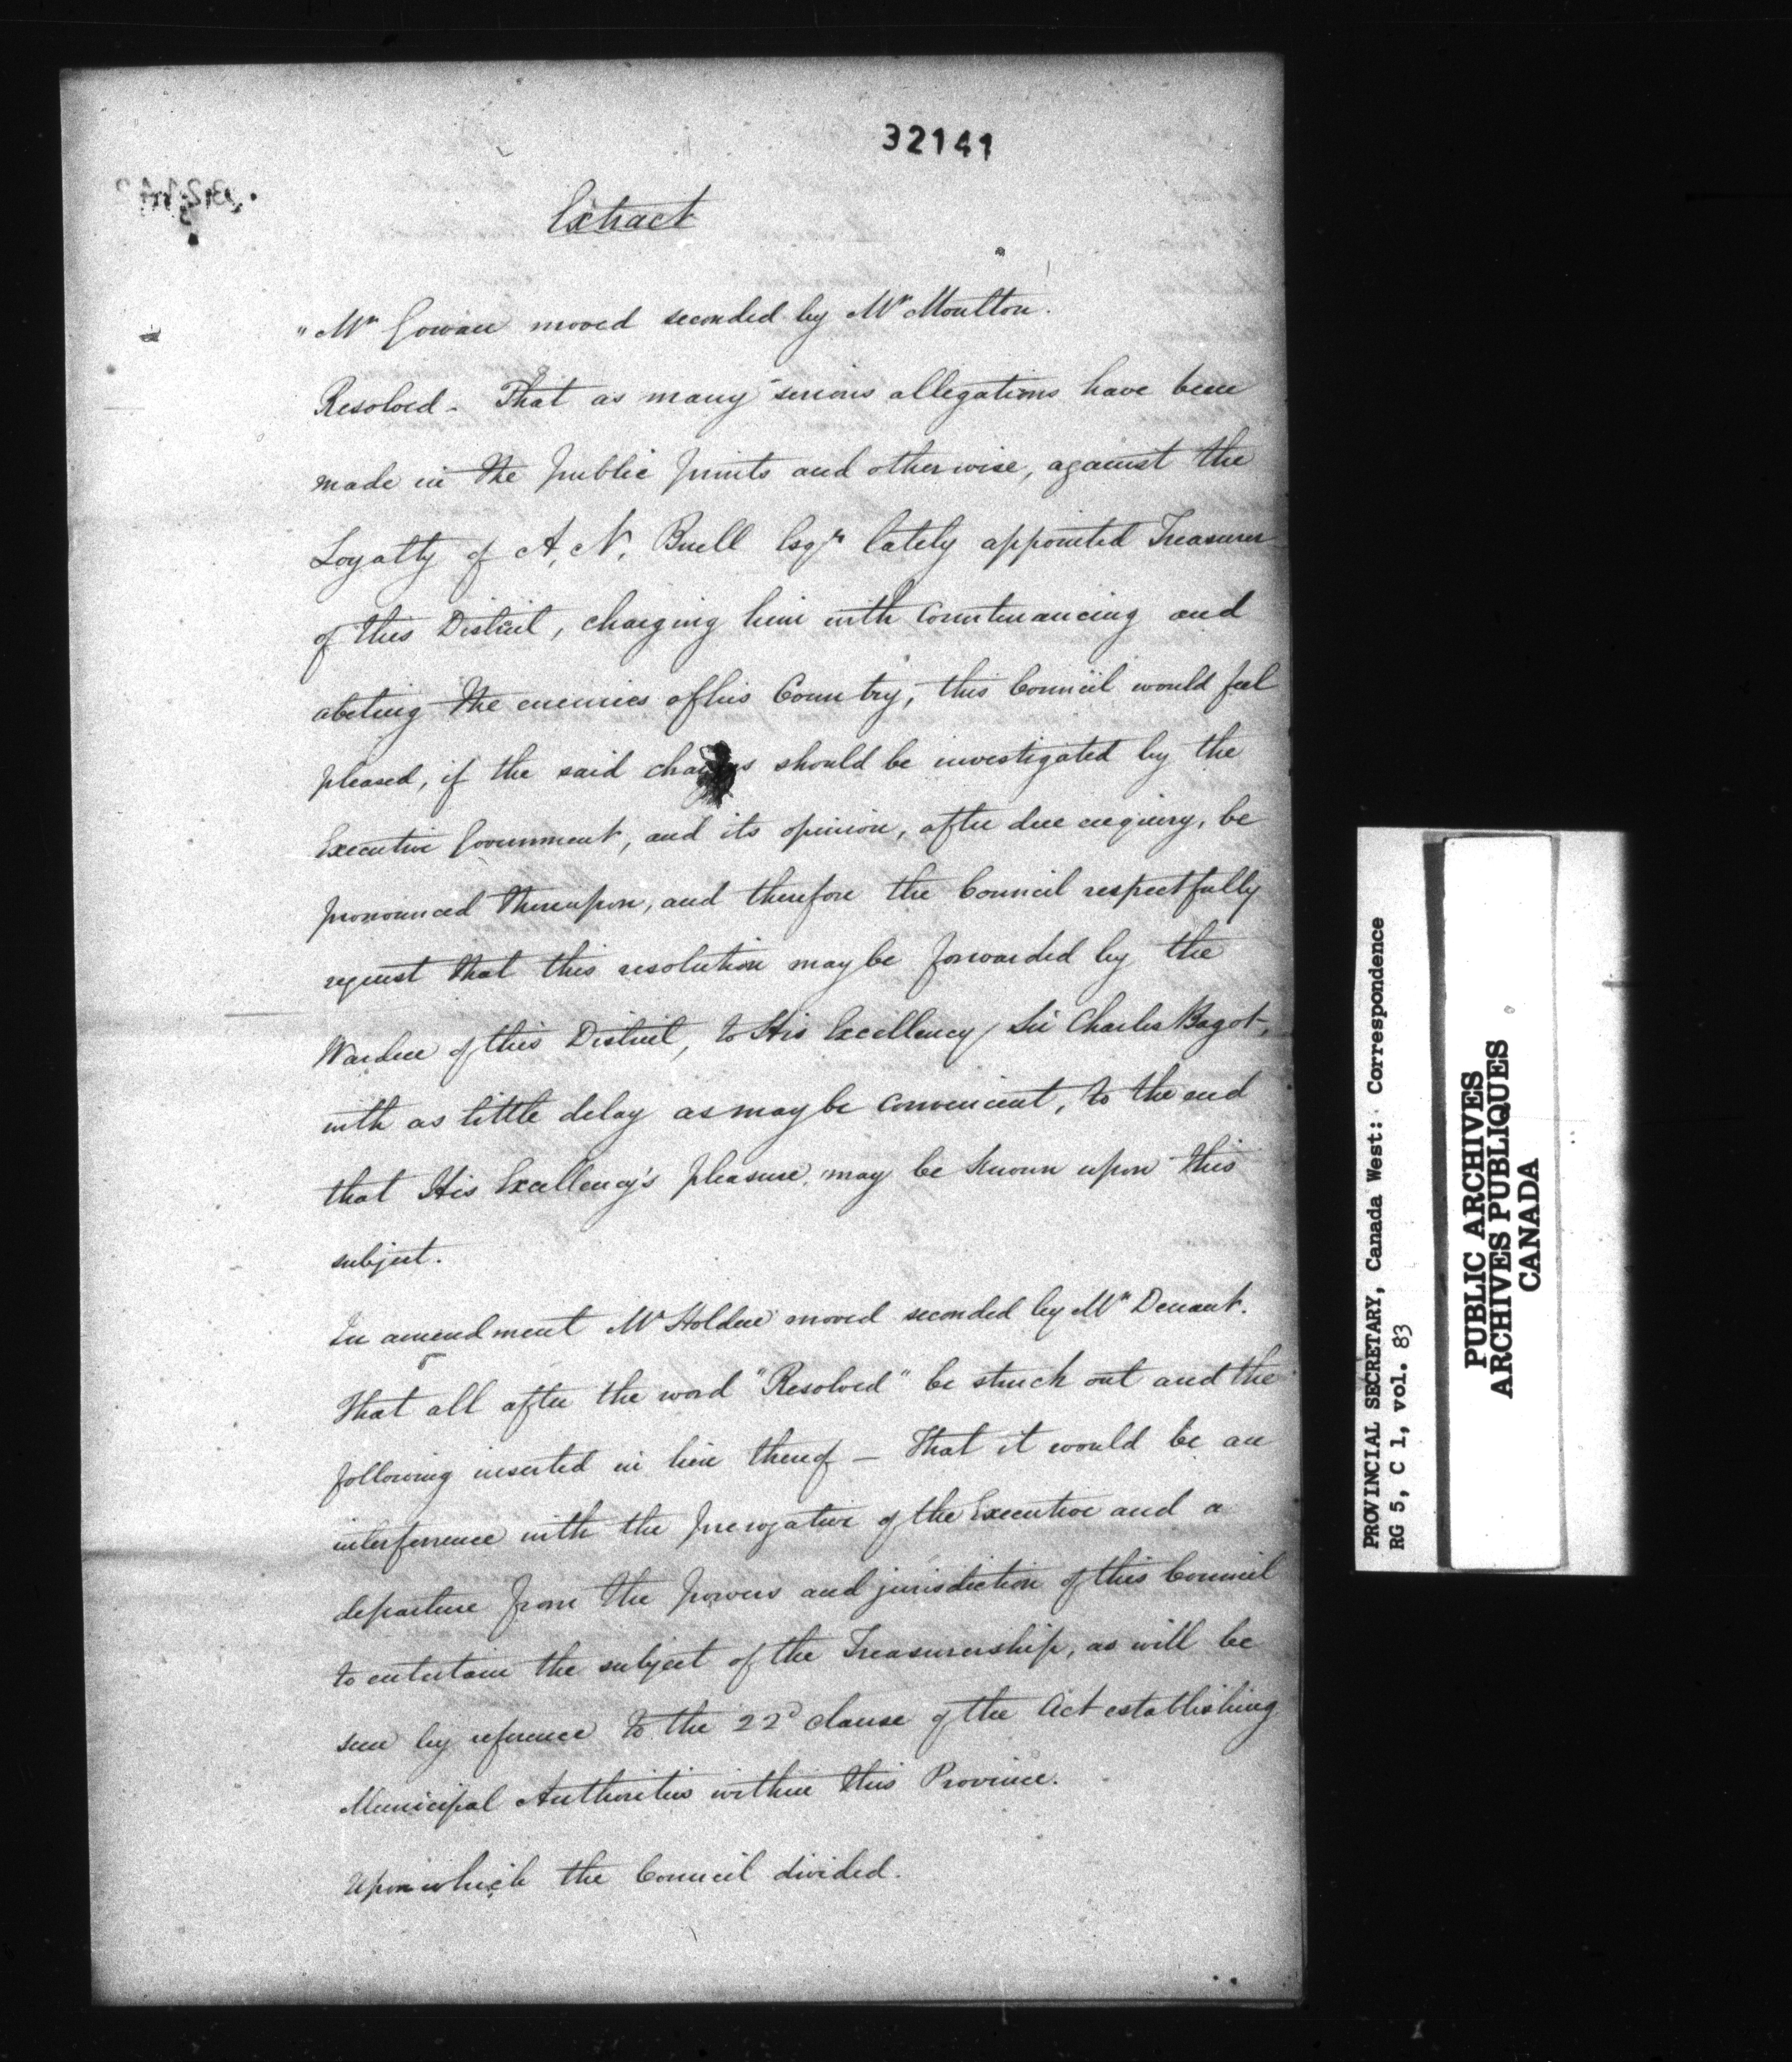 32141
Extract
"Mr Gowan moved seconded by Mr Moulton.
Resolved - That as many serious allegations have been
made in the public prints and otherwise, against the
Loyalty of A. N. Buell Esqr lately appointed Treasurer
of this District, charging him with countenancing and
abeting the enemies of his Country, this Council would feel
pleased, if the said charges should be investigated by the
Executive Government, and its opinion, after due enquiry, be
pronounced thereupon, and therefore the Council respectfully
request that this resolution may be forwarded by the
Warden of this District, to His Excellency Sir Charles Bagot,
with as little delay as may be convenient, to the end
that His Excellency's pleasure may be known upon this
subject.
In amendment Mr Holden moved seconded by Mr Denant.
That all after the word "Resolved" be struck out and the
following inserted in lieu thereof - That it would be an
interference with the prerogative of the Executive and a
departure from the powers and jurisdiction of this Council
to entertain the subject of the Treasurership, as will be
seen by reference to the 22d clause of the Act establishing
Municipal Authorities within this Province.
Upon which the Council divided.
PROVINCIAL SECRETARY, Canada West: Correspondence
RG 5, C 1, vol. 83
PUBLIC ARCHIVES
ARCHIVES PUBLIQUES
CANADA